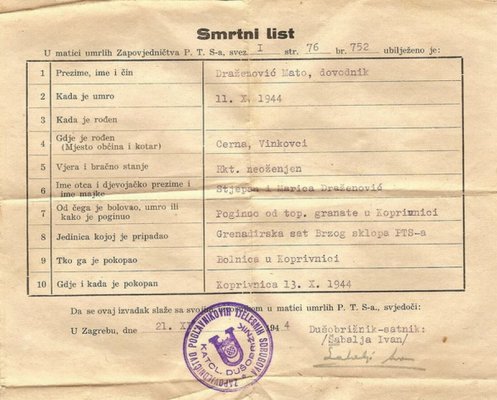 Smrtni list
U matici umrlih Zapovjedničtva P. T. S-a, svez. I str. 76 br. 752 ubilježeno je:
1 Prezime, ime i čin Draženović Mato, dovodnik
2 Kada je umro 11. X. 1944
3 Kada je rođen
4 Gdje je rođen (Mjesto občina i kotar) Cerna, Vinkovci
5 Vjera i bračno stanje Rkt. neoženjen
6 Ime otca i djevojačko prezime i ime majke Stjepan i Marica Draženović
7 Od čega je bolovao, umro ili kako je poginuo Poginuo od top. granate u Koprivnici
8 Jedinica kojoj je pripadao Grenadirska sat Brzog sklopa PTS-a
9 Tko ga je pokopao Bolnica u Koprivnici
10 Gdje i kada je pokopan Koprivnica 13. X. 1944
Da se ovaj izvadak slaže sa svojim u matici umrlih P. T. S-a, svjedoči:
U Zagrebu, dne 21. 194 4
Dušobrižnik-satnik:
/Šabalja Ivan/
ZAPOVJEDNIČTVO POGLAVNIKOVIH TJELESNIH SDRUGOVA
KATOL. DUŠOBRIŽNIK